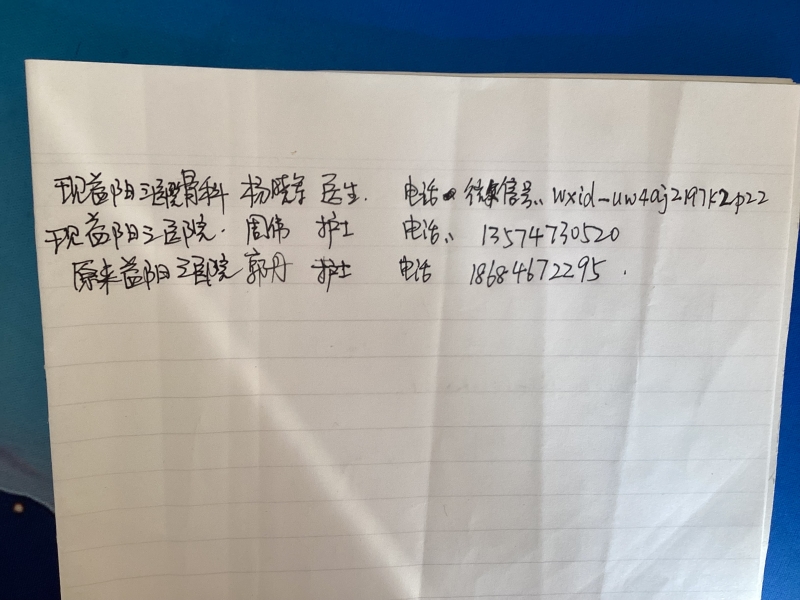 现益阳三医院骨科 杨晓军 医生. 电话 微信号:wxid-uw4aj2197k2p22
现益阳三医院. 周伟 护士 电话: 13574730520
原来益阳三医院 郭丹 护士 电话 18684672295.